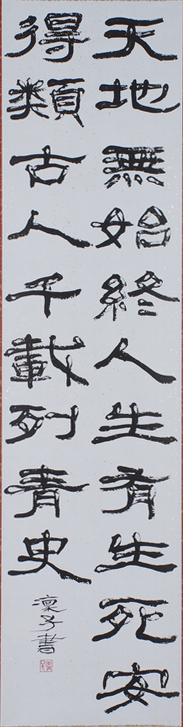 天地無始終人生有生死安
得類古人千載列青史
凛子書